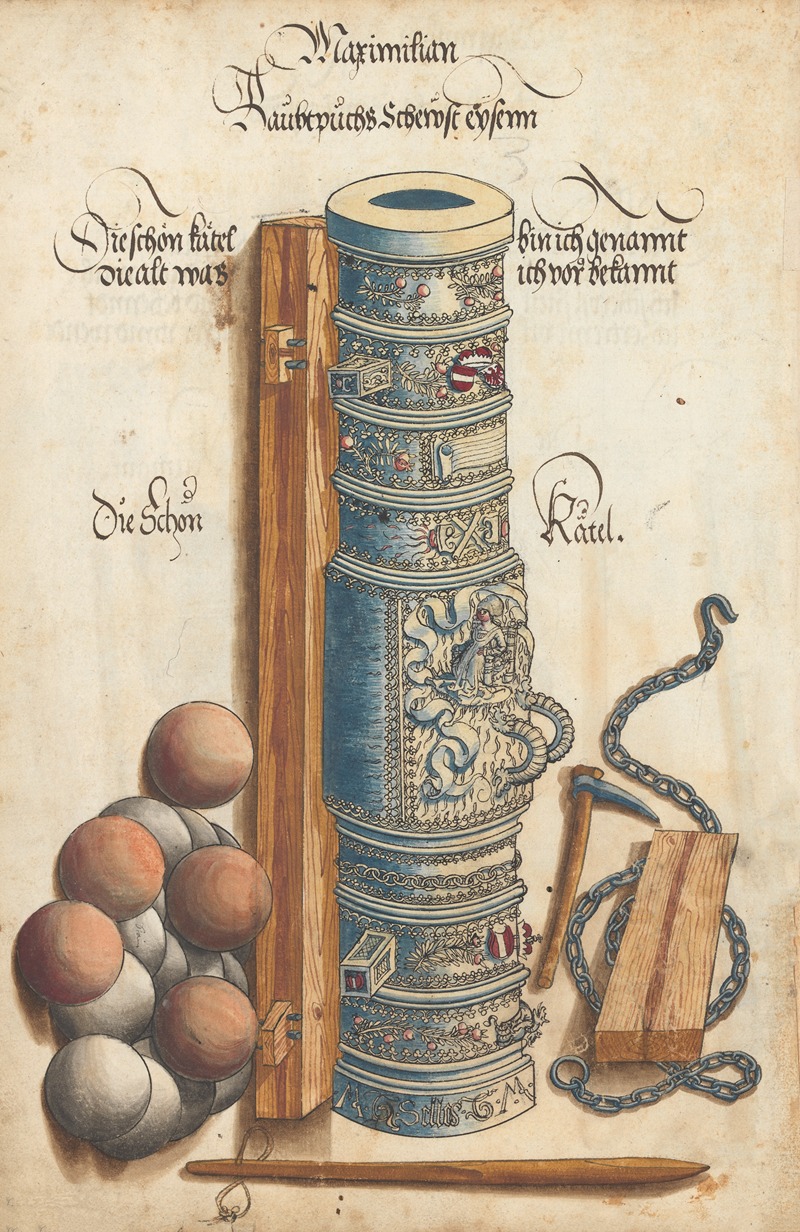 Maximilian
Haubtpuchs Scherpst eysenn
Die schön kätel bin ich genannt
die alt was ich vor bekannt
Die Schön Kätel.